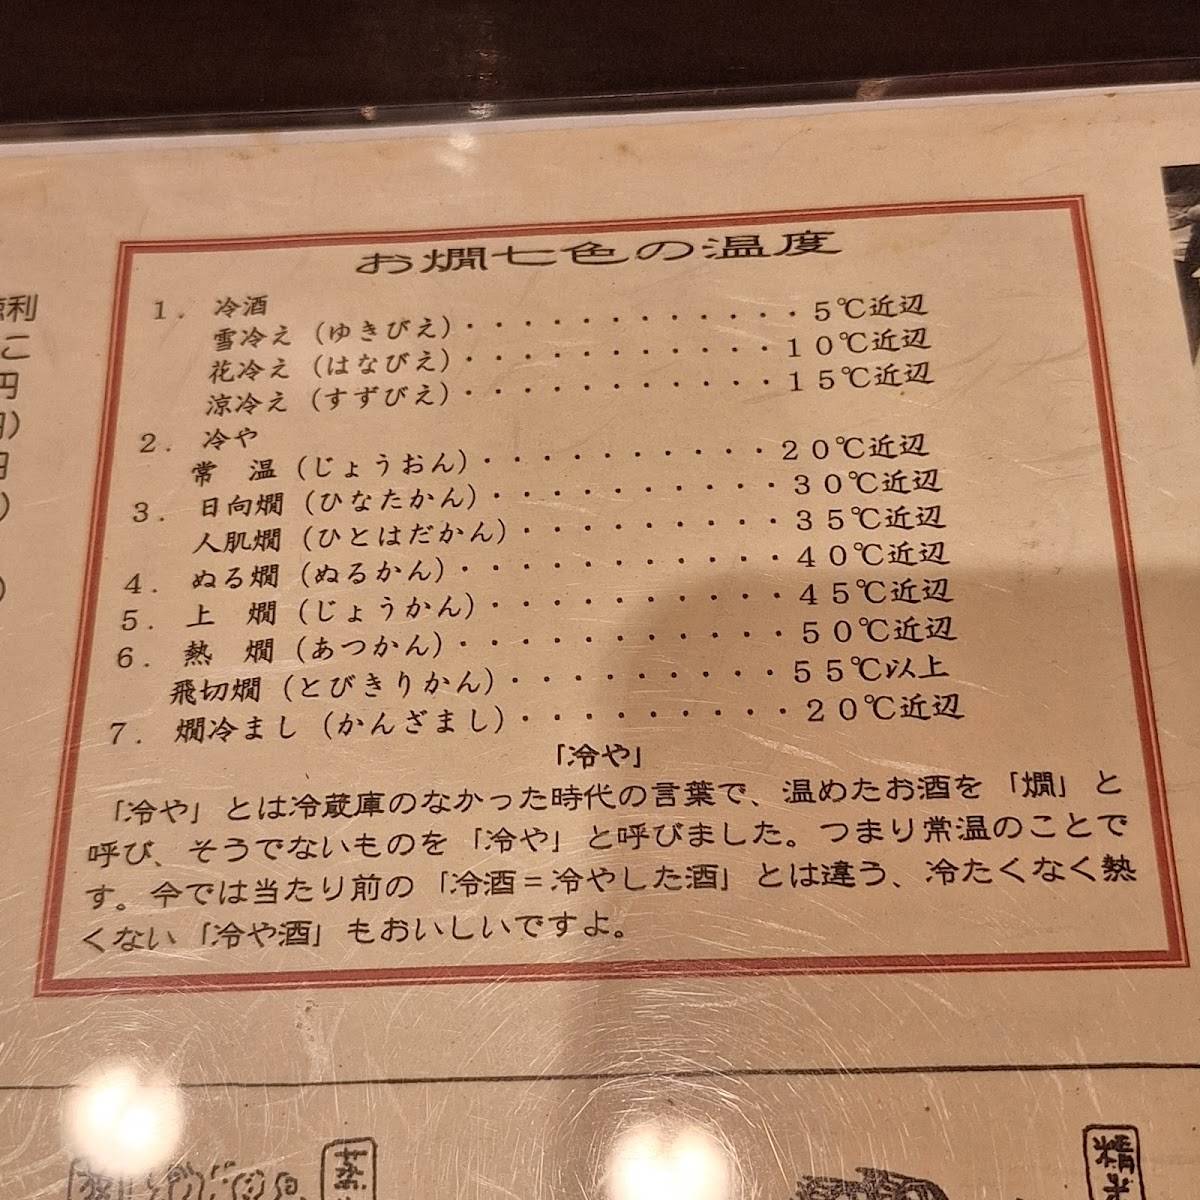 お燗七色の温度
1. 冷酒
雪冷え(ゆきびえ)・・・・・・・・・・・・5℃近辺
花冷え(はなびえ)・・・・・・・・・・・10℃近辺
涼冷え(すずびえ)・・・・・・・・・・・15℃近辺
2. 冷や
常 温(じょうおん)・・・・・・・・・・20℃近辺
3. 日向燗(ひなたかん)・・・・・・・・・・30℃近辺
人肌燗(ひとはだかん)・・・・・・・・・35℃近辺
4. ぬる燗(ぬるかん)・・・・・・・・・・・40℃近辺
5. 上 燗(じょうかん)・・・・・・・・・・45℃近辺
6. 熱 燗(あつかん)・・・・・・・・・・・50℃近辺
飛切燗(とびきりかん)・・・・・・・・・55℃以上
7. 燗冷まし(かんざまし)・・・・・・・・・20℃近辺
「冷や」
「冷や」とは冷蔵庫のなかった時代の言葉で、温めたお酒を「燗」と
呼び、そうでないものを「冷や」と呼びました。つまり常温のことで
す。今では当たり前の「冷酒=冷やした酒」とは違う、冷たくなく熱
くない「冷や酒」もおいしいですよ。
利
こ
円
円)
円
)
)
精米